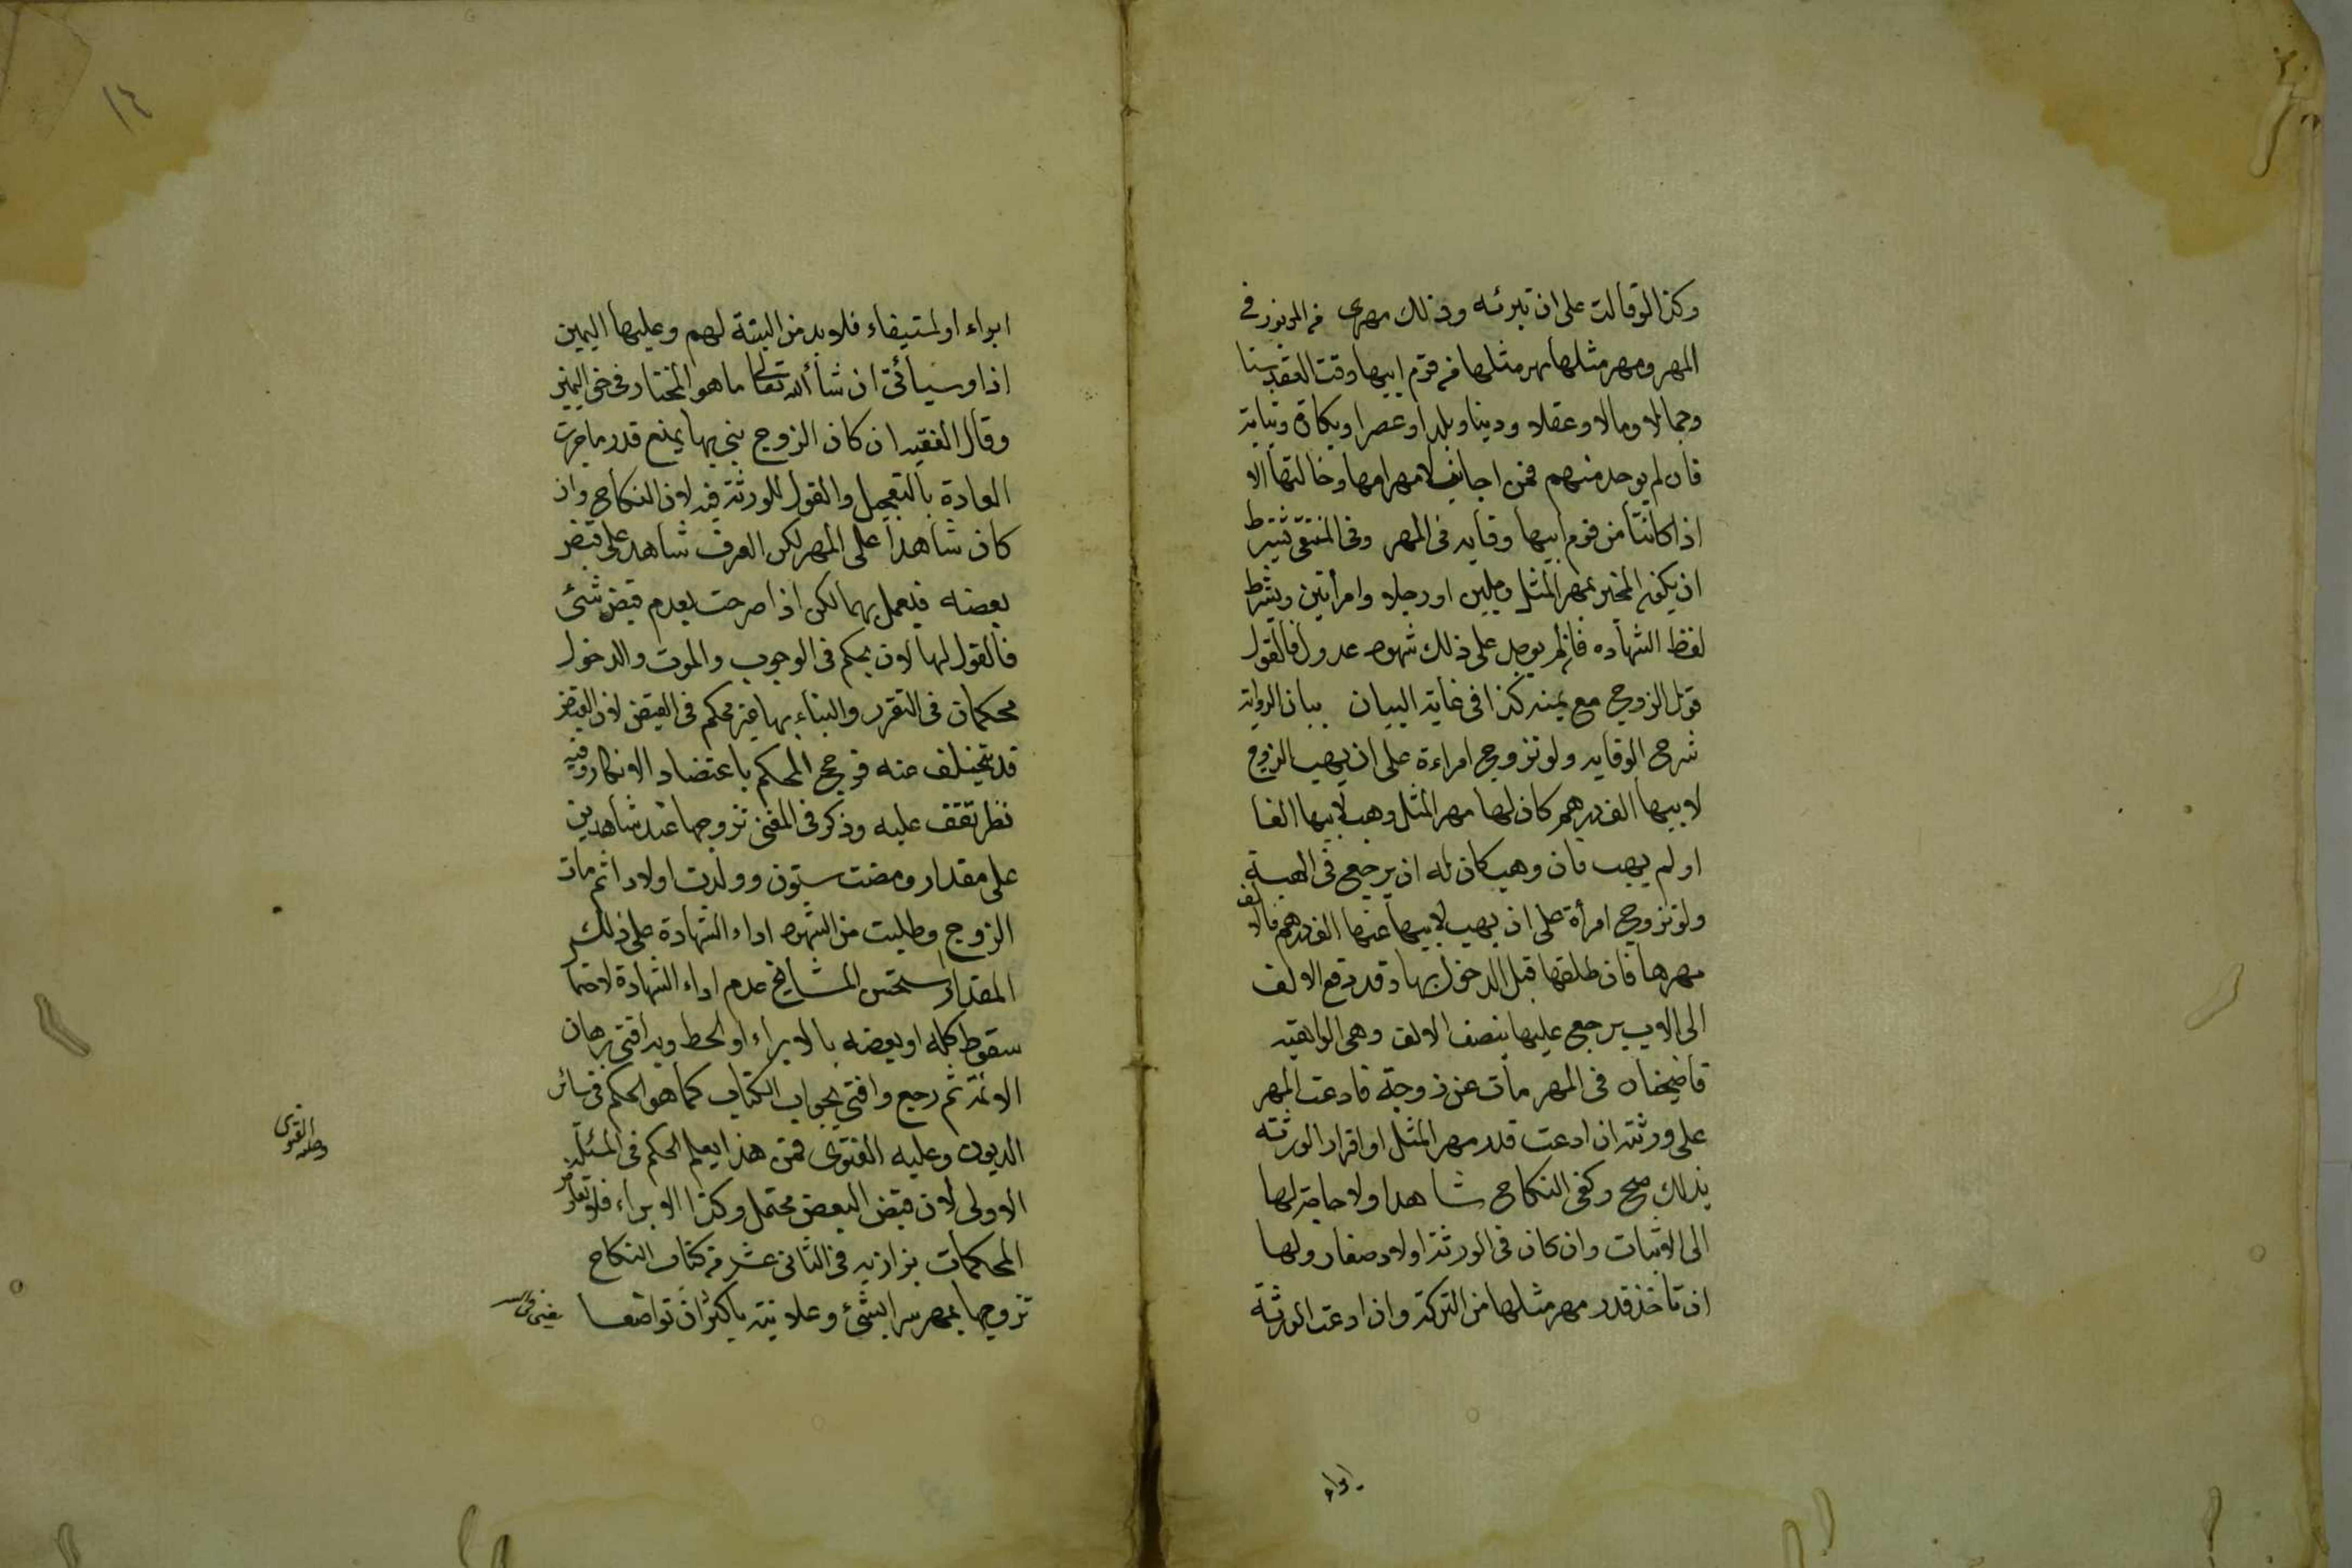 وكذا لو قالت على ان تبرئه وذلك مهرى من المزبور فى
المهر ومهر مثلها مهر مثلها من قوم ابيها وقت العقد سنا
وجمالا ومالا وعقلا ودينا وبلدا وعصرا وبكارة وثيابة
فان لم يوجد منهم فمن اجانب لا مهر امها وخالتها الا
اذا كانتا من قوم ابيها وقايه فى المهر وفى المنتقى يشترط
ان يكون المخبر بمهر المثل رجلين او رجلا وامرأتين ويشترط
لفظ الشهاده فان لم يوجد على ذلك شهود عدول فالقول
قول الزوج مع يمينه كذا فى غاية البيان ببيان الرواية
شرح الوقايه ولو تزوج امراءة على ان يهب الزوج
لابيها الف درهم كان لها مهر المثل وهب لابيها الفا
او لم يهب فان وهب كان له ان يرجع فى الهبة
ولو تزوج امرأة على ان يهب لابيها عنها الف درهم فالالف
مهرها فان طلقها قبل الدخول بها وقد دفع الالف
الى الاب يرجع عليها بنصف الالف وهى الواهبة
قاضيخان فى المهر مات عن زوجة فادعت المهر
على ورثته ان ادعت قدر مهر المثل او اقرار الورثة
بذلك صح وكفى النكاح شاهدا ولا حاجة لها
الى الاثبات وان كان فى الورثة اولاد صغار ولها
ان تاخذ قدر مهر مثلها من التركة وان ادعت الورثة
ابراء
١٤
ابراء او استيفاء فلا بد من البينة لهم وعليها اليمين
اذا وسيأتى ان شأ الله تعالى ما هو المختار فى حق اليمين
وقال الفقيه ان كان الزوج بنى بها يمنع قدر ما جرت
العادة بالتعجيل والقول للورثة فيه لان النكاح وان
كان شاهدا على المهر لكن العرف شاهد على قبض
بعضه فيعمل بهما لكن اذا صرحت بعدم قبض شئ
فالقول لها لان محكم فى الوجوب والموت والدخول
محكمان فى التقرر والبناء بها غير محكم فى القبض لان القبض
قد يتخلف عنه فرجح المحكم باعتضاد الانكار وفيه
نظر تقف عليه وذكر فى المغنى تزوجها عند شاهدين
على مقدار ومضت سنون وولدت اولادا ثم مات
الزوج وطلبت من الشهود اداء الشهادة على ذلك
المقدار استحسن المشايخ عدم اداء الشهادة لاحتما
سقوط كله او بعضه بالابراء او الحط وبه افتى برهان
الائمة ثم رجع وافتى بجواب الكتاب كما هو الحكم فى سائر
الديون وعليه الفتوى فمن هذا يعلم الحكم فى المسئلة
الاولى لان قبض البعض محتمل وكذا الابراء فلا
المحكمات بزازيه فى الثانى عشر من كتاب النكاح
تزوجها بمهر سرا بشئ وعلانية باكثر ان تواضعا
وعليه الفتوى